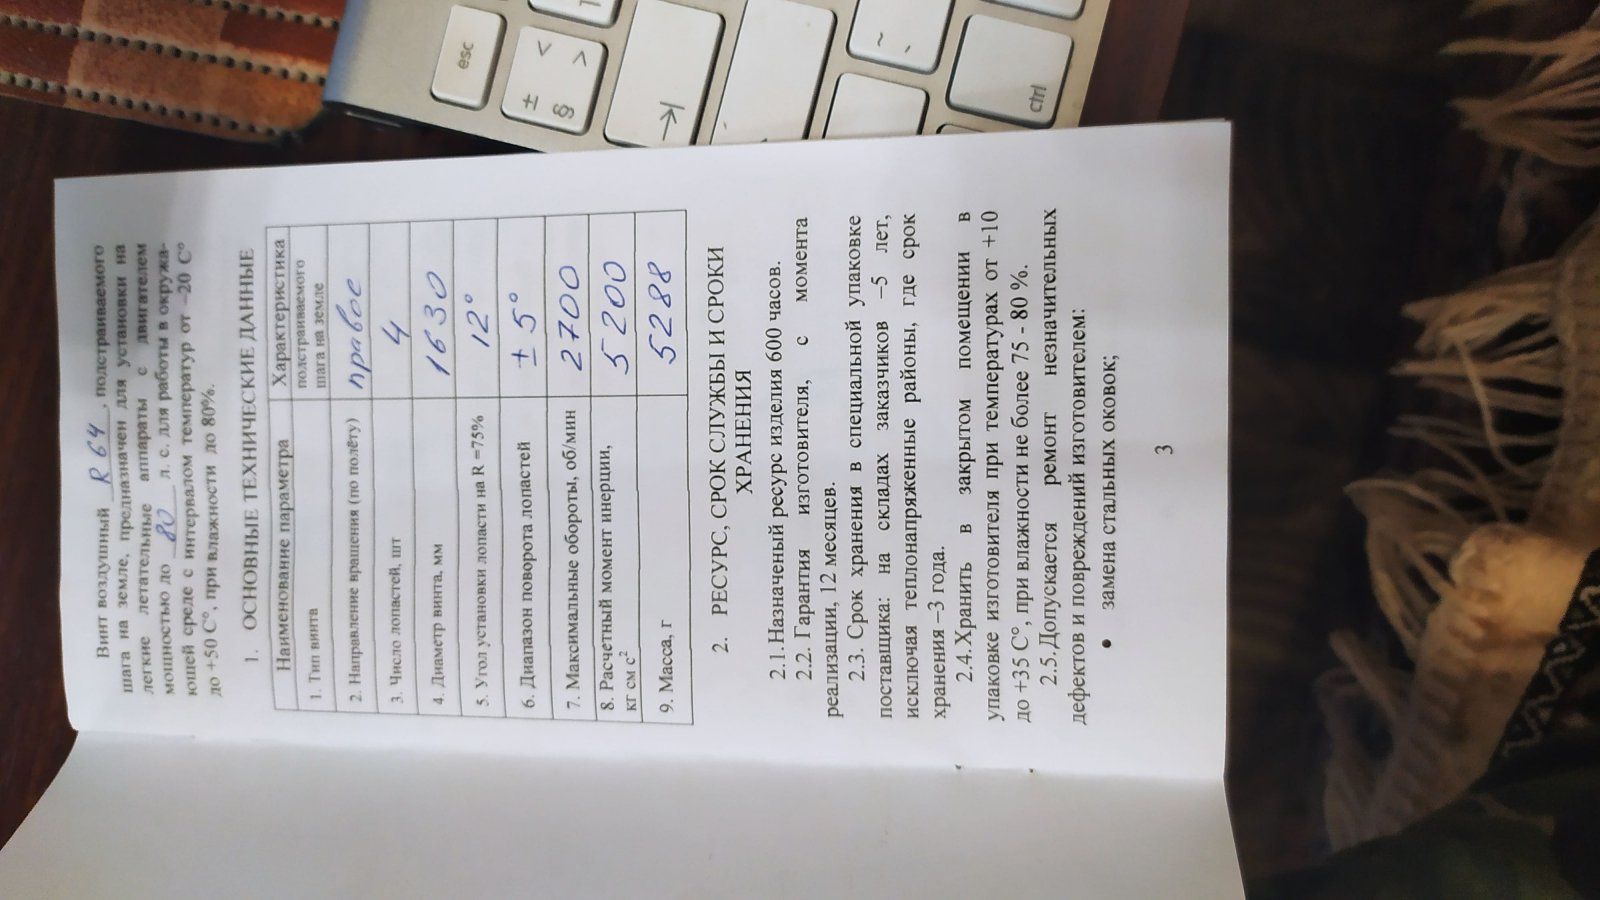 Винт воздушный R 64, подстраиваемого
шага на земле, предназначен для установки на
легкие летательные аппараты с двигателем
мощностью до 80 л. с. для работы в окружа-
ющей среде с интервалом температур от –20 С°
до +50 С°, при влажности до 80%.
1. ОСНОВНЫЕ ТЕХНИЧЕСКИЕ ДАННЫЕ
Наименование параметра Характеристика
1. Тип винта подстраиваемого
шага на земле
2. Направление вращения (по полёту) правое
3. Число лопастей, шт 4
4. Диаметр винта, мм 1630
5. Угол установки лопасти на R =75% 12°
6. Диапазон поворота лопастей ± 5°
7. Максимальные обороты, об/мин 2700
8. Расчетный момент инерции, 5200
кг см с²
9. Масса, г 5288
2. РЕСУРС, СРОК СЛУЖБЫ И СРОКИ
ХРАНЕНИЯ
2.1. Назначеный ресурс изделия 600 часов.
2.2. Гарантия изготовителя, с момента
реализации, 12 месяцев.
2.3. Срок хранения в специальной упаковке
поставщика: на складах заказчиков –5 лет,
исключая теплонапряженные районы, где срок
хранения –3 года.
2.4. Хранить в закрытом помещении в
упаковке изготовителя при температурах от +10
до +35 С°, при влажности не более 75 - 80 %.
2.5. Допускается ремонт незначительных
дефектов и повреждений изготовителем:
• замена стальных оковок;
3
esc
± <
§ >
→|
~
ctrl